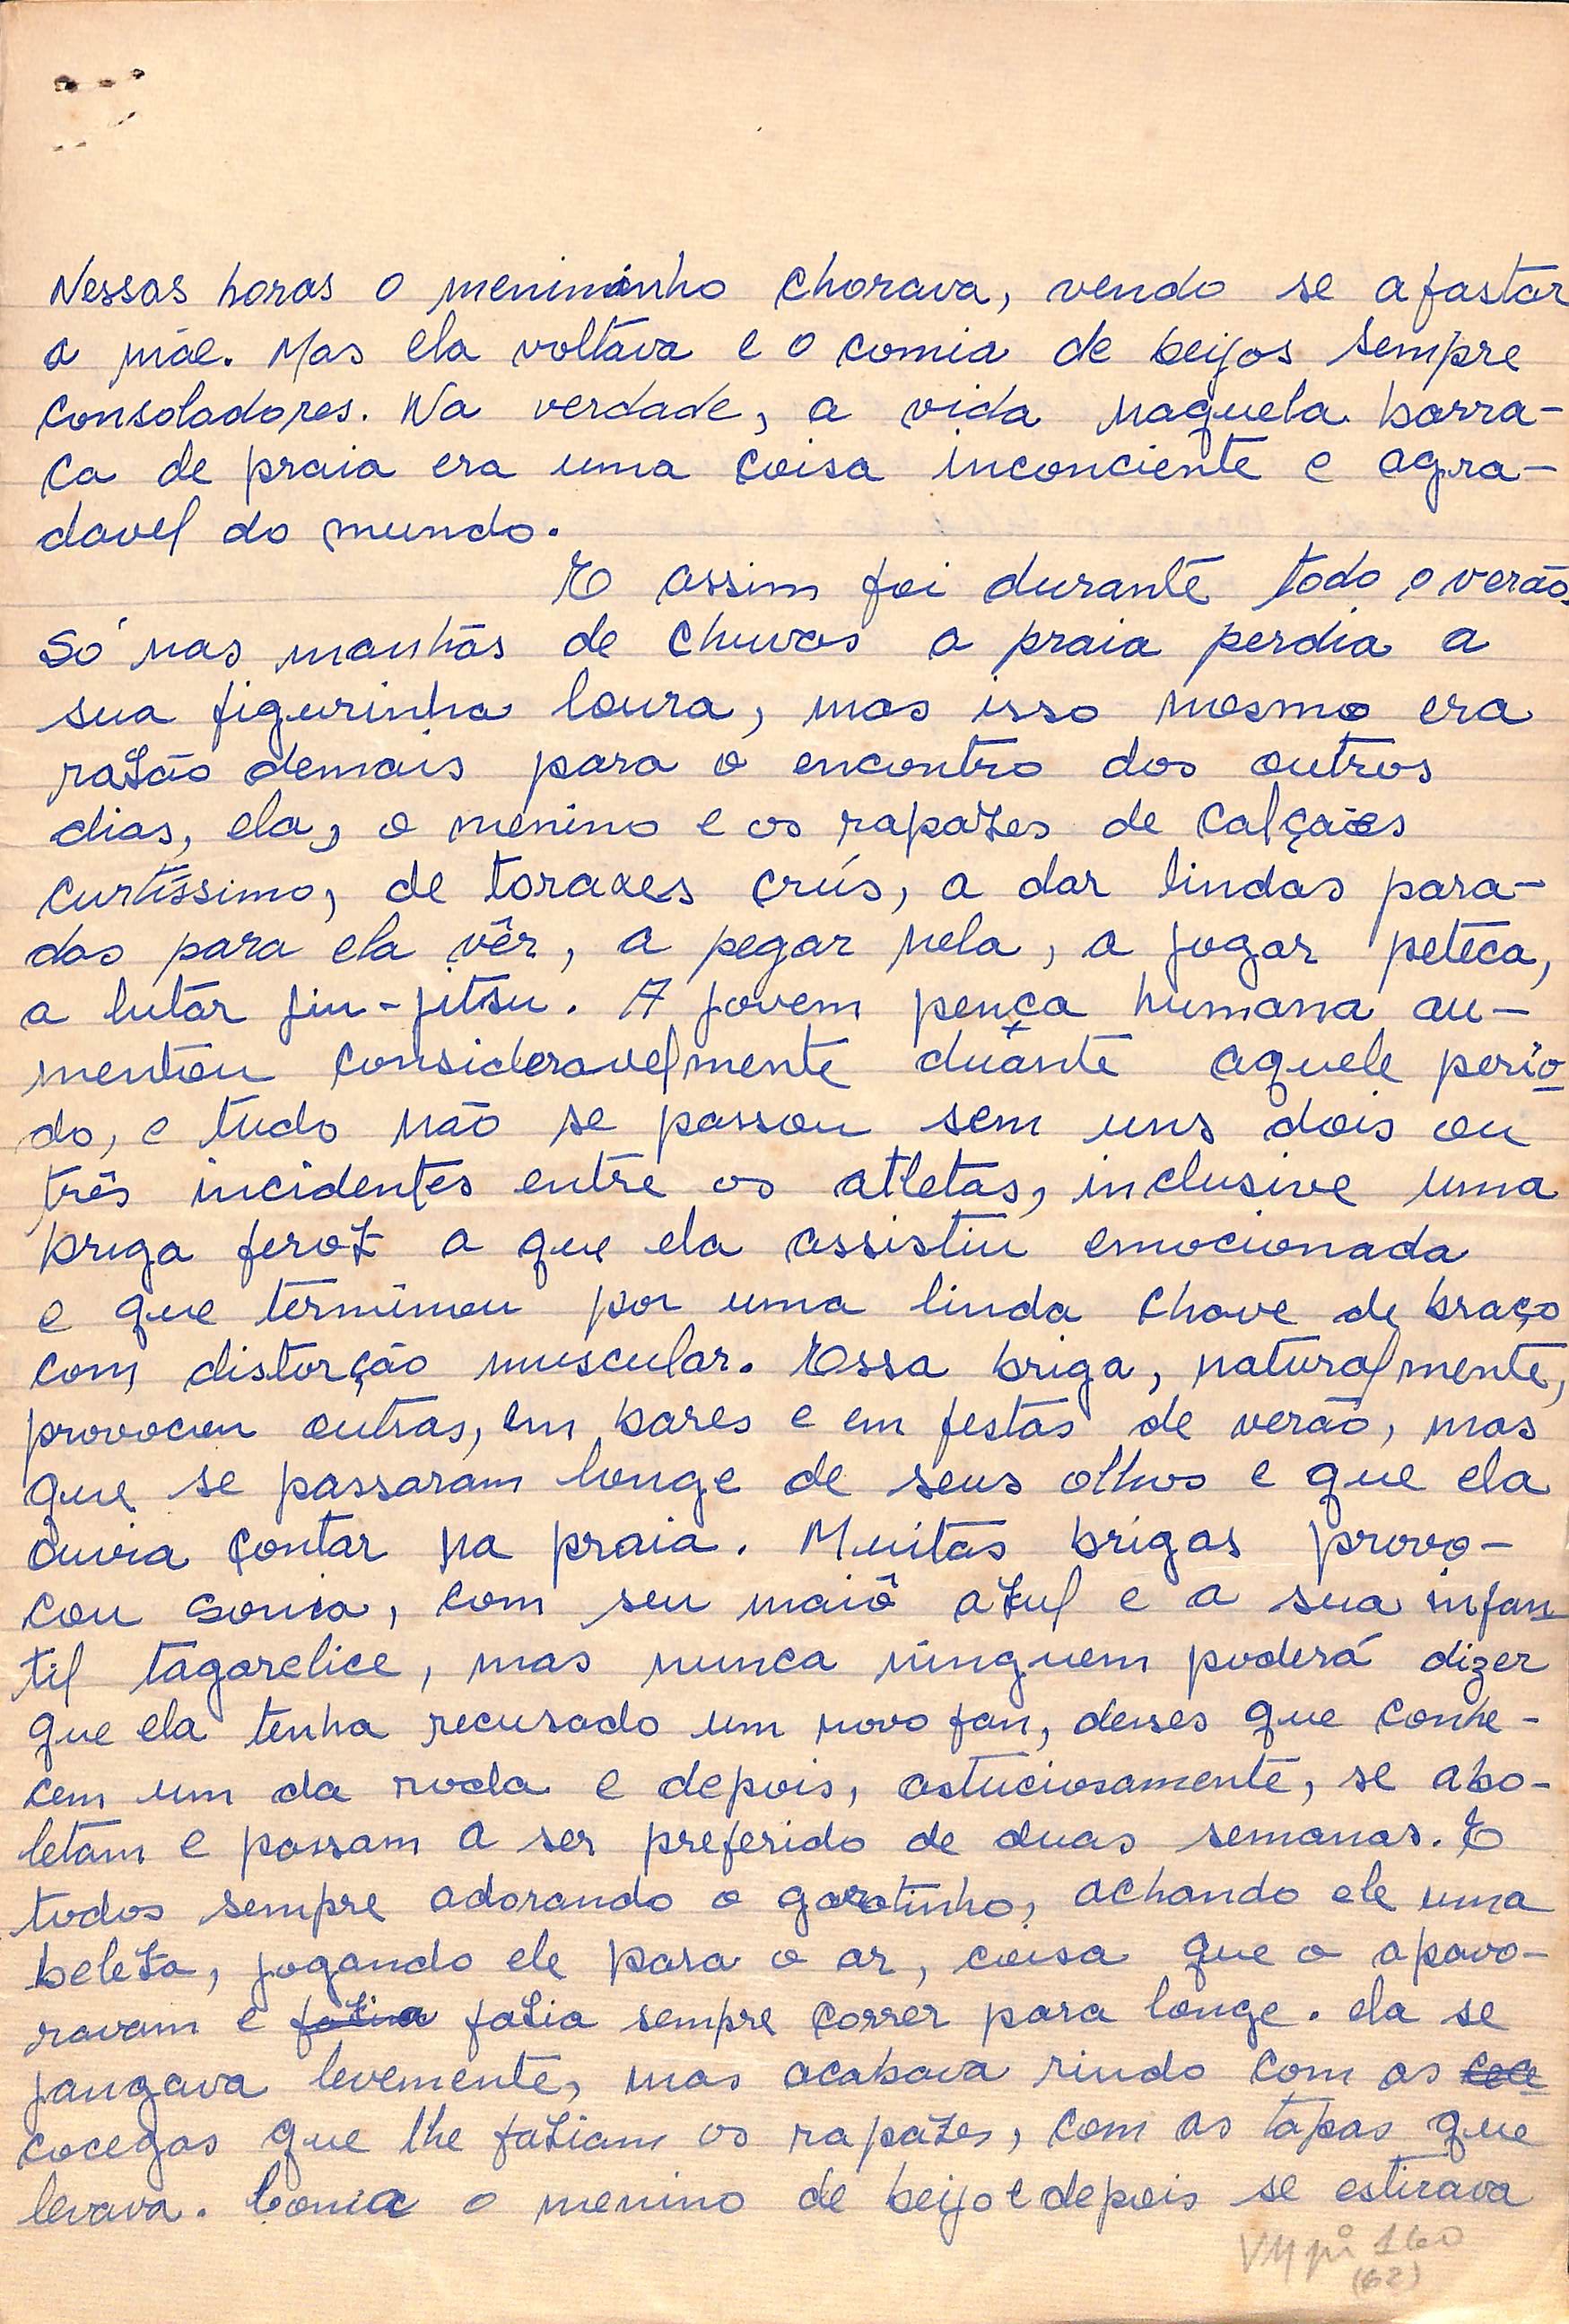 Nessas horas o menininho chorava, vendo se afastar
a mãe. Mas ela voltava e o comia de beijos sempre
consoladores. Na verdade, a vida naquela barra-
ca de praia era uma coisa inconciente e agra-
davel do mundo.
E assim foi durante todo o verão.
Só nas manhãs de chuvas a praia perdia a
sua figurinha loura, mas isso mesmo era
razão demais para o encontro dos outros
dias, ela, o menino e os rapazes de calções
curtíssimo, de toraxes crús, a dar lindas para-
das para ela vêr, a pegar nela, a jogar peteca,
a lutar jiu-jitsu. A jovem penca humana au-
mentou consideravelmente duante aquele perio
do, e tudo não se passou sem uns dois ou
três incidentes entre os atletas, inclusive uma
briga feroz a que ela assistiu emocionada
e que terminou por uma linda chave de braço
com distorção muscular. Essa briga, naturalmente,
provocou outras, em bares e em festas de verão, mas
que se passaram longe de seus olhos e que ela
ouvia contar na praia. Muitas brigas provo-
cou Sonia, com seu maiô azul e a sua infan
til tagarelice, mas nunca ninguem poderá dizer
que ela tenha recusado um novo fan, desses que conhe-
cem um da roda e depois, astuciosamente, se abo-
letam e passam a ser preferido de duas semanas. E
todos sempre adorando o garotinho, achando ele uma
beleza, jogando ele para o ar, coisa que o apavo-
ravam e fazia fazia sempre correr para longe. ela se
zangava levemente, mas acabava rindo com as coce
cocegas que lhe faziam os rapazes, com as tapas que
levava. Comia o menino de beijo e depois se estirava
VM pi 160
(62)